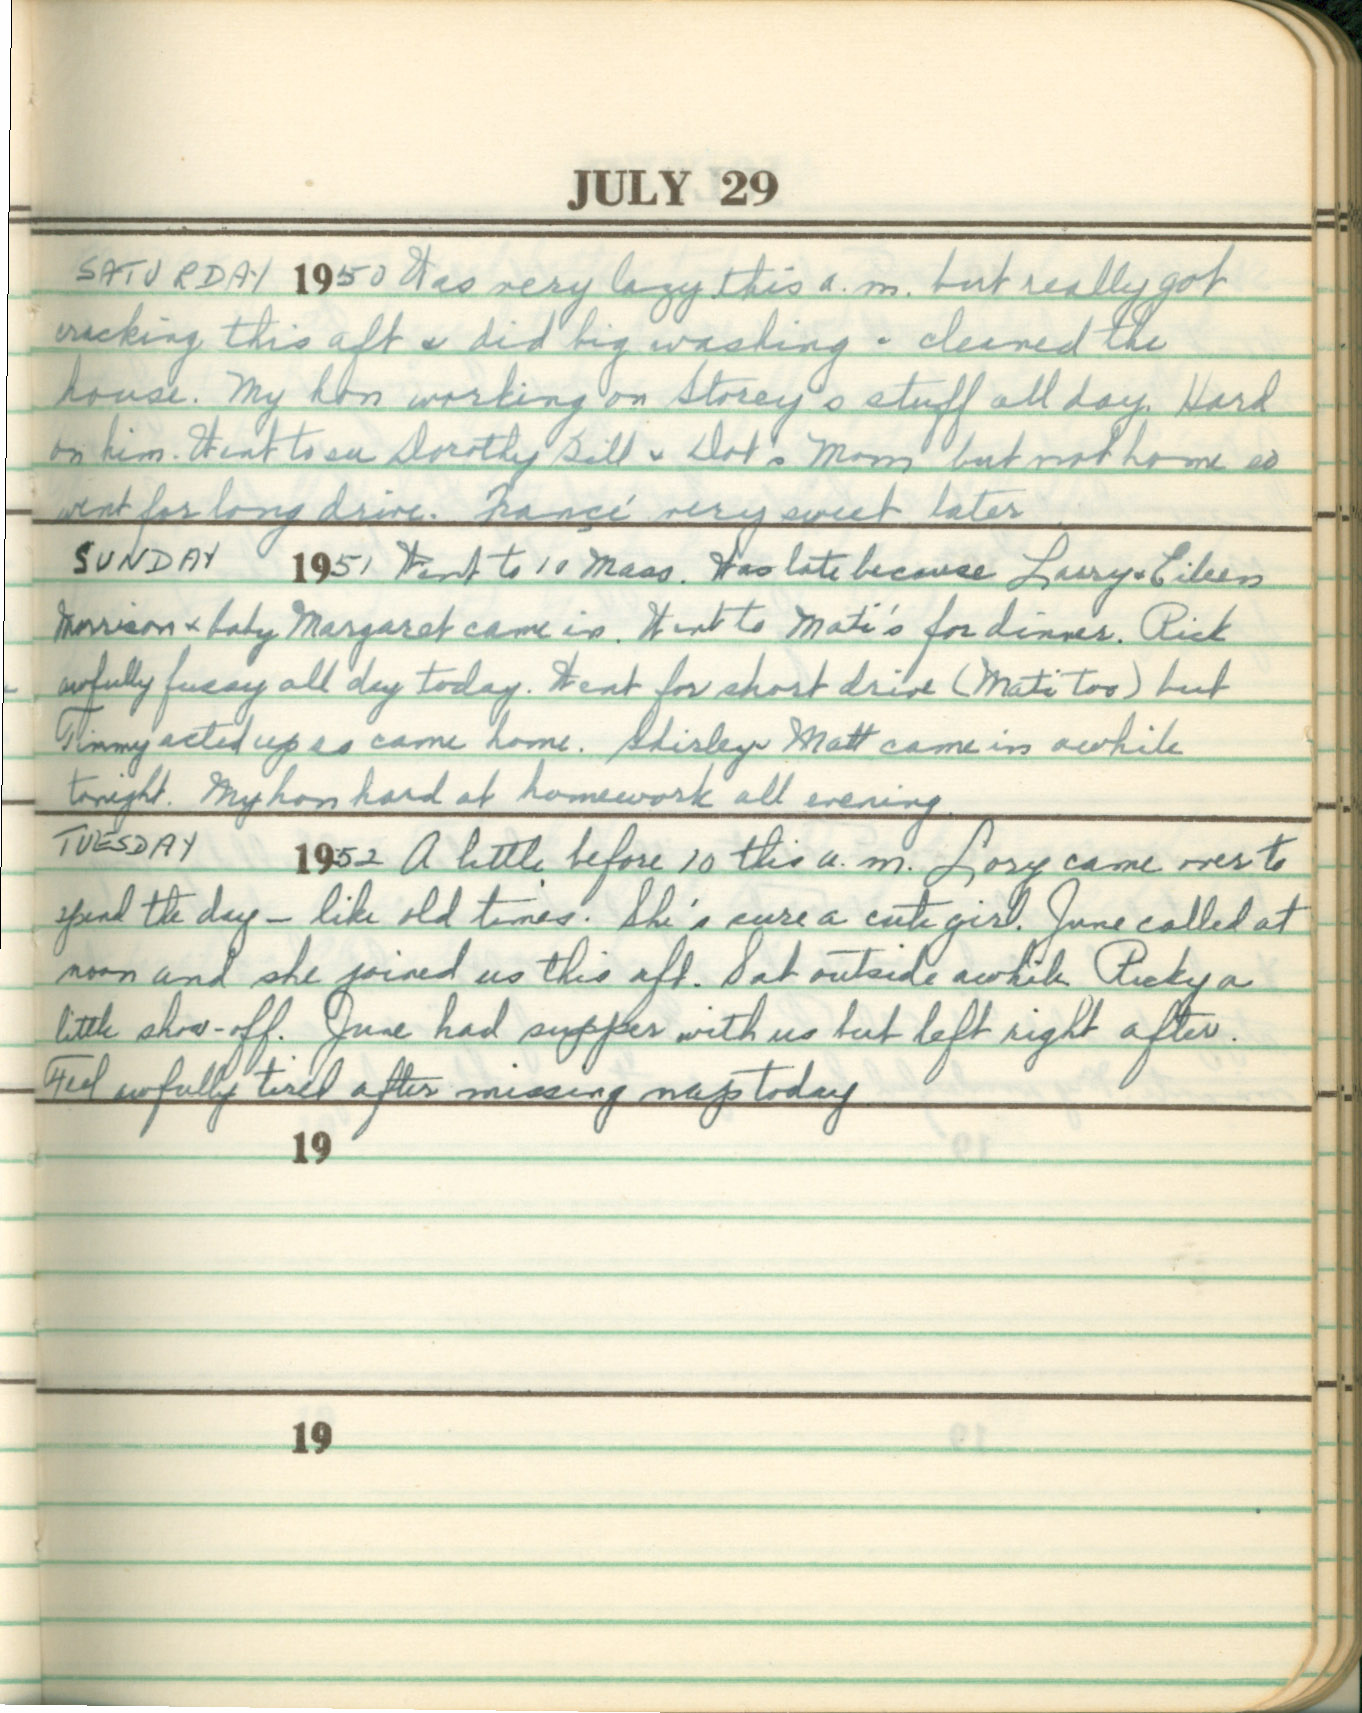 JULY 29
SATURDAY 1950 Was very lazy this a.m. but really got
cracking this aft & did big washing & cleaned the
house. My hon working on Storey's stuff all day. Hard
on him. Went to see Dorothy Gill & Dot's Mom but not home so
went for long drive. very sweet later
SUNDAY 1951 Went to 10 Mass. Was late because Larry & Eileen
Morrison & baby Margaret came in. Went to Mati's for dinner. Rick
awfully fussy all day today. Went for short drive (Mati too) but
Timmy acted up so came home. Shirley & Matt came in awhile
tonight. My hon hard at homework all evening.
TUESDAY 1952 A little before 10 this a.m. Lory came over to
spend the day – like old times. She's sure a cute girl. June called at
noon and she joined us this aft. Sat outside awhile. Ricky a
little show-off. June had supper with us but left right after.
Feel awfully tired after missing nap today
19
19